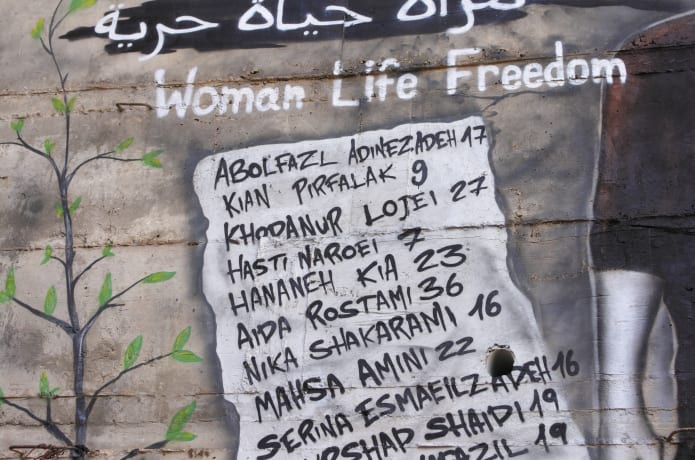 امرأة حياة حرية
Woman Life Freedom
ABOLFAZL ADINEZADEH 17
KIAN PIRFALAK 9
KHODANUR LOJEI 27
HASTI NAROEI 7
HANANEH KIA 23
AIDA ROSTAMI 36
NIKA SHAKARAMI 16
MAHSA AMINI 22
SERINA ESMAEILZADEH 16
SHAIDI 19
19